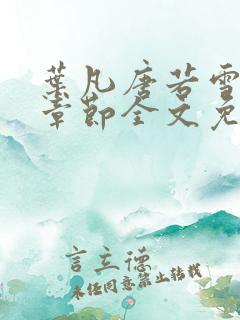 葉凡唐若雪
章節全文免
言立德
未经同意禁止转载